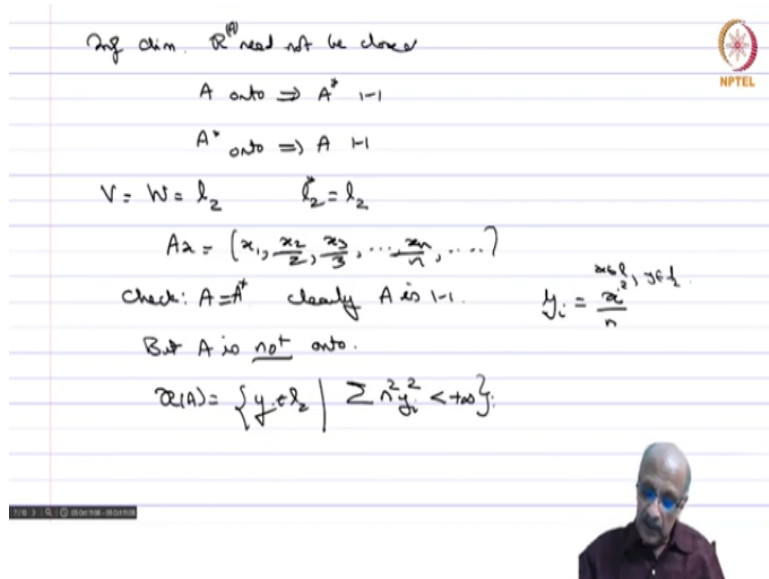 Inf dim. R(A) need not be closed
NPTEL
A onto ⇒ A* 1-1
A* onto ⇒ A 1-1
V = W = l₂ l₂* = l₂
Ax = (x₁, x₂/2, x₃/3, ..., xₙ/n, ....)
Check: A = A* clearly A is 1-1.
x∈l₂, y∈l₂.
yᵢ = xᵢ/n
But A is not onto.
R(A) = {y ∈ l₂ | Σ n²yᵢ² < +∞}.